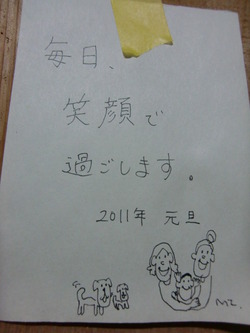 毎日、
笑顔で
過ごします。
2011年 元旦